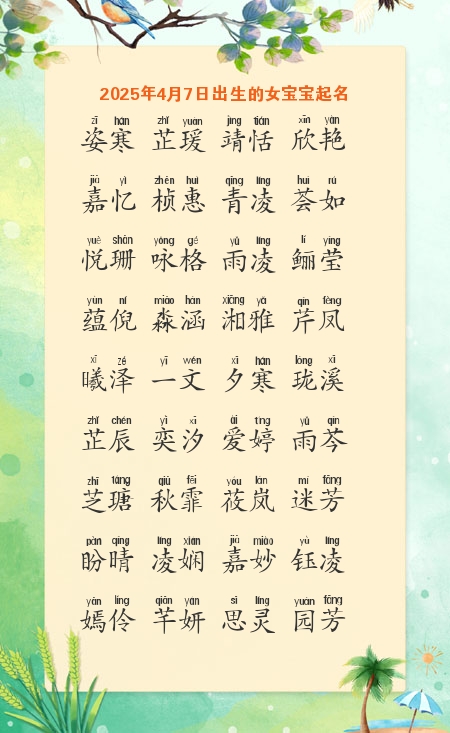 2025年4月7日出生的女宝宝起名
zī hán zhǐ yuàn jìng tián xīn yàn
姿寒 芷瑗 靖恬 欣艳
jiā yì zhēn huì qīng líng huì rú
嘉忆 桢惠 青凌 荟如
yuè shān yǒng gé yǔ líng lí yíng
悦珊 咏格 雨凌 鲡莹
yùn ní miǎo hán xiāng yǎ qín fèng
蕴倪 淼涵 湘雅 芹凤
xī zé yī wén xī hán lóng xī
曦泽 一文 夕寒 珑溪
zhǐ chén yì xī ài tíng yǔ qín
芷辰 奕汐 爱婷 雨芩
zhī táng qiū fēi yóu lán mí fāng
芝瑭 秋霏 莜岚 迷芳
pàn qíng líng xián jiā miào yù líng
盼晴 凌娴 嘉妙 钰凌
yān líng qiān yán sī líng yuán fāng
嫣伶 芊妍 思灵 园芳